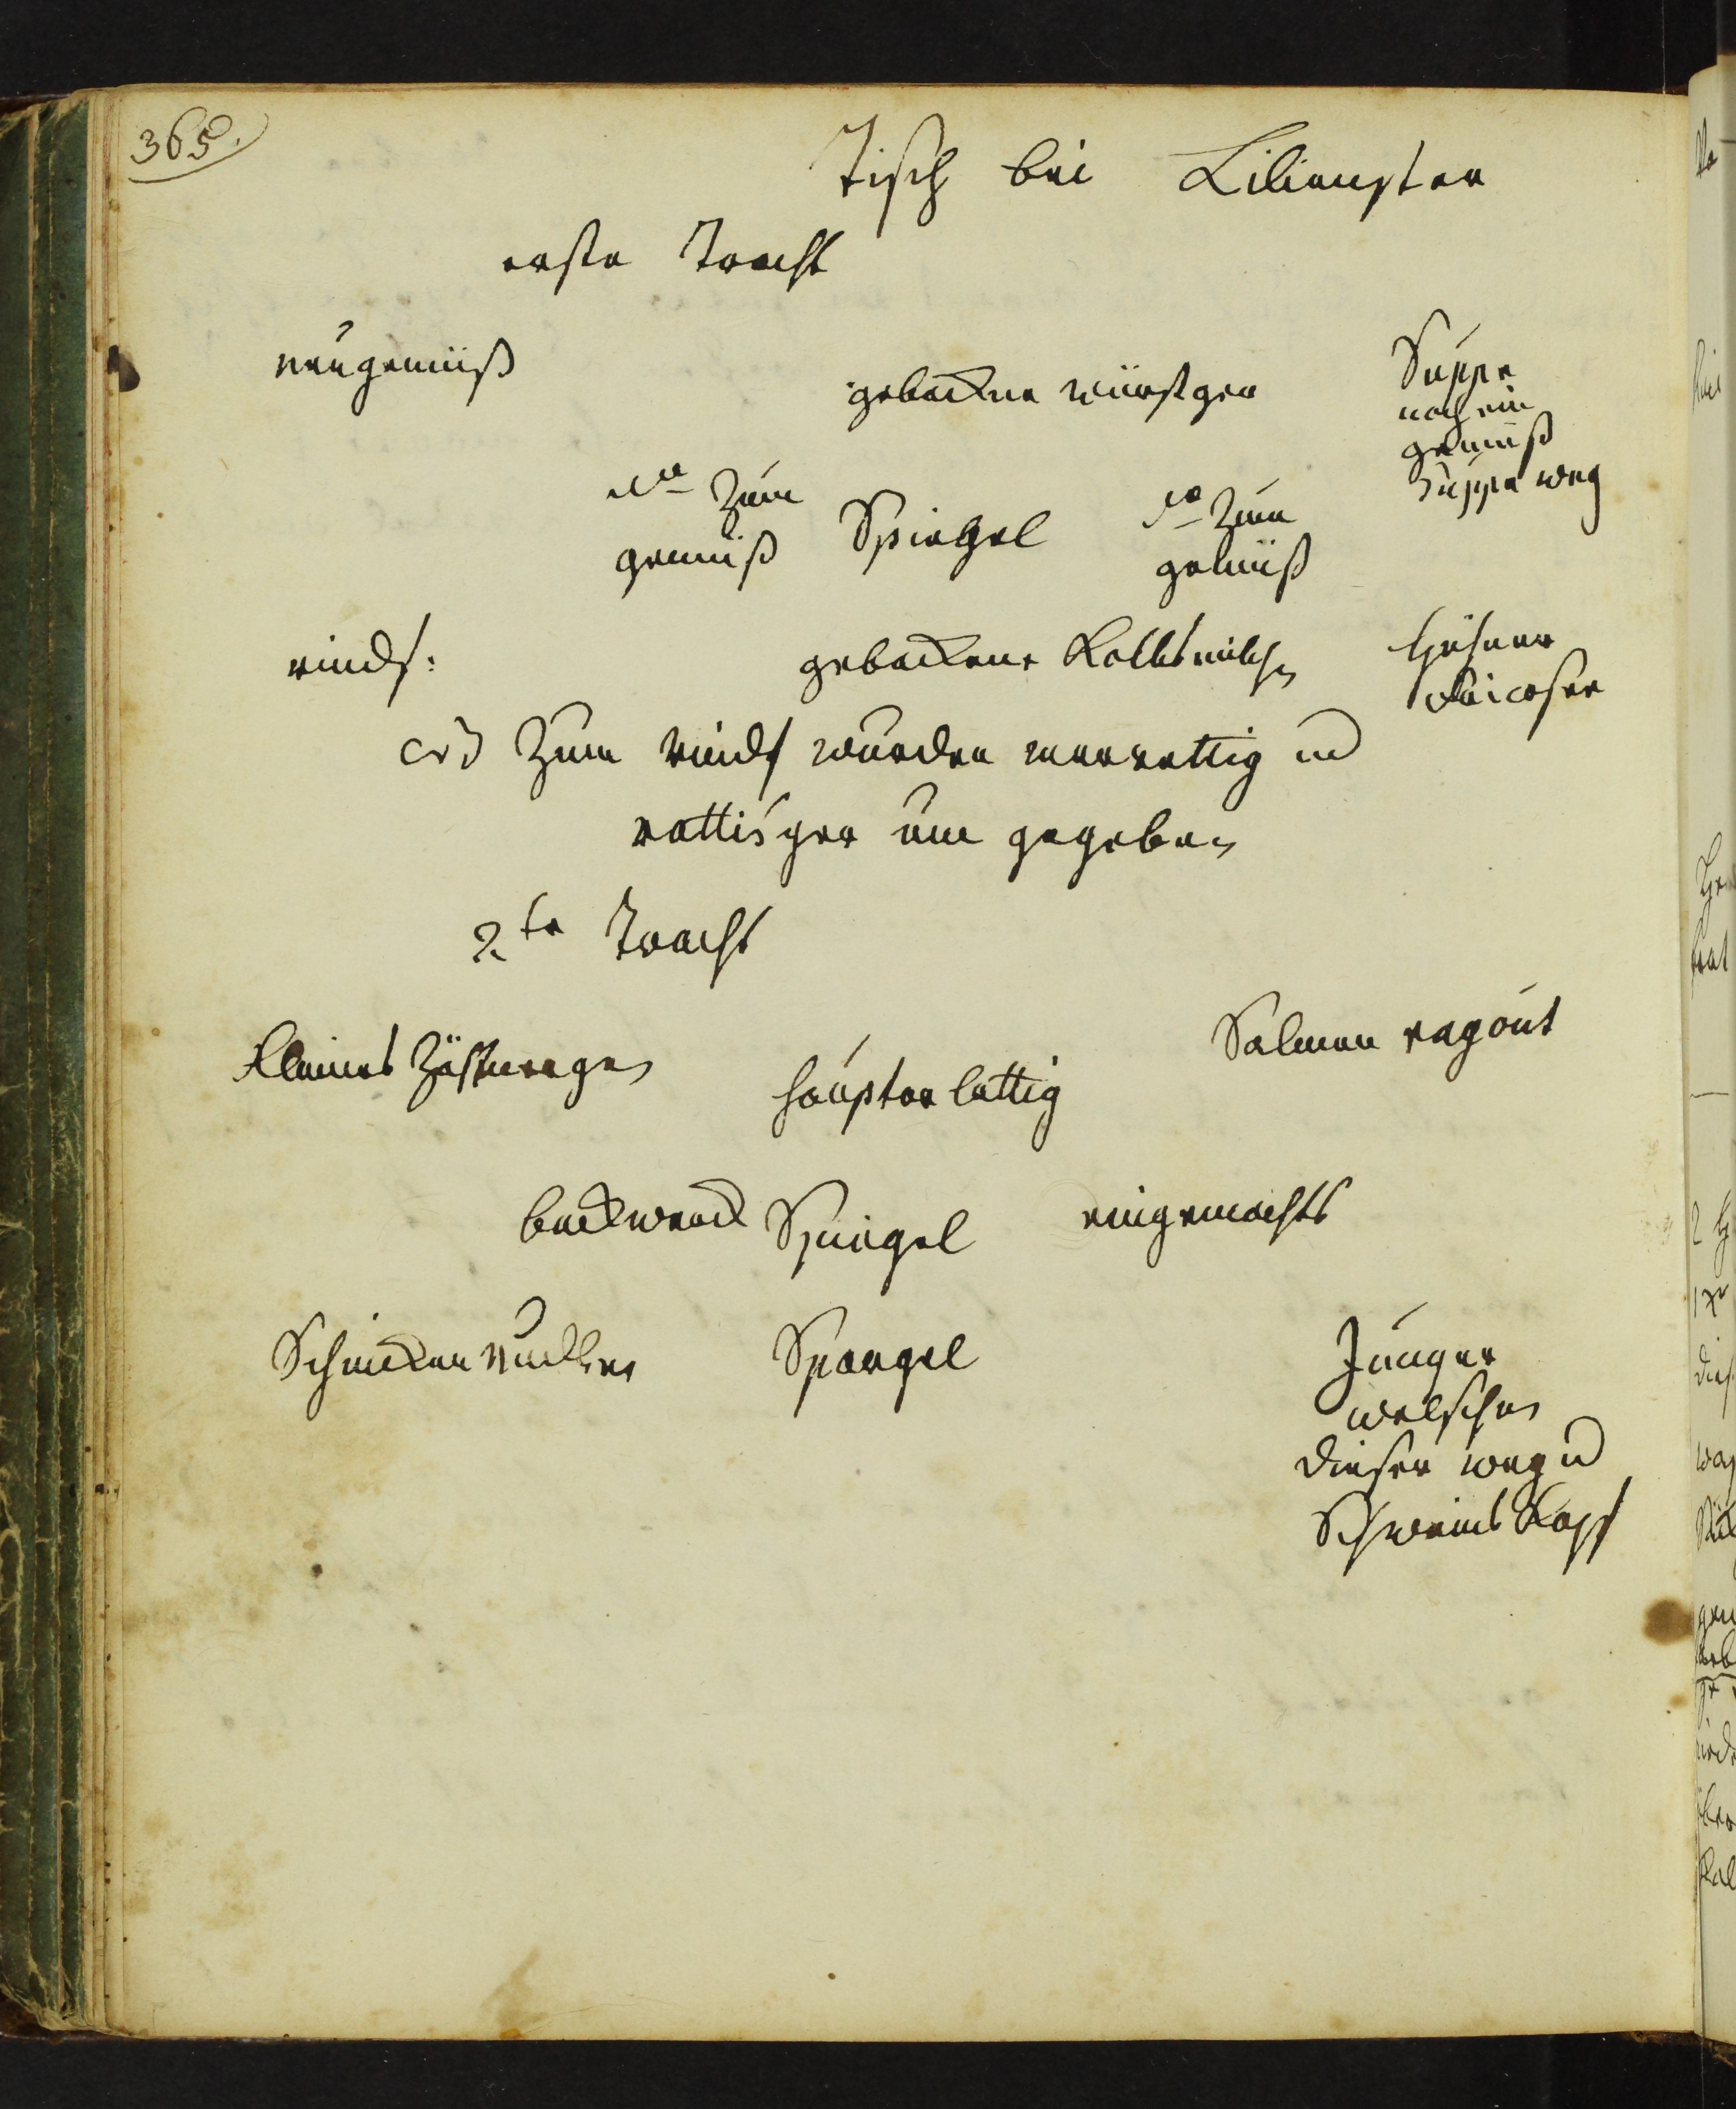 365.
Tisch bei Lilienster
erste Tracht
neugemüß
gebackne würstger
Suppe
noch ein
gemüß
Suppe weg
do zum
gemüß
Spiegel
do zum
gemüß
rindf:
gebackene Kalbsmilchen
Hühner
fricaseer
zum rindf wurden merrettig und
rettiger um gegeben
2te Tracht
Kleines
haupter lattig
Salmen ragout
backwerck
Spiegel
eingemachts
Schincken nudlen
Spargel
Junger
welschen
dieser weg u
Schweins Kopf